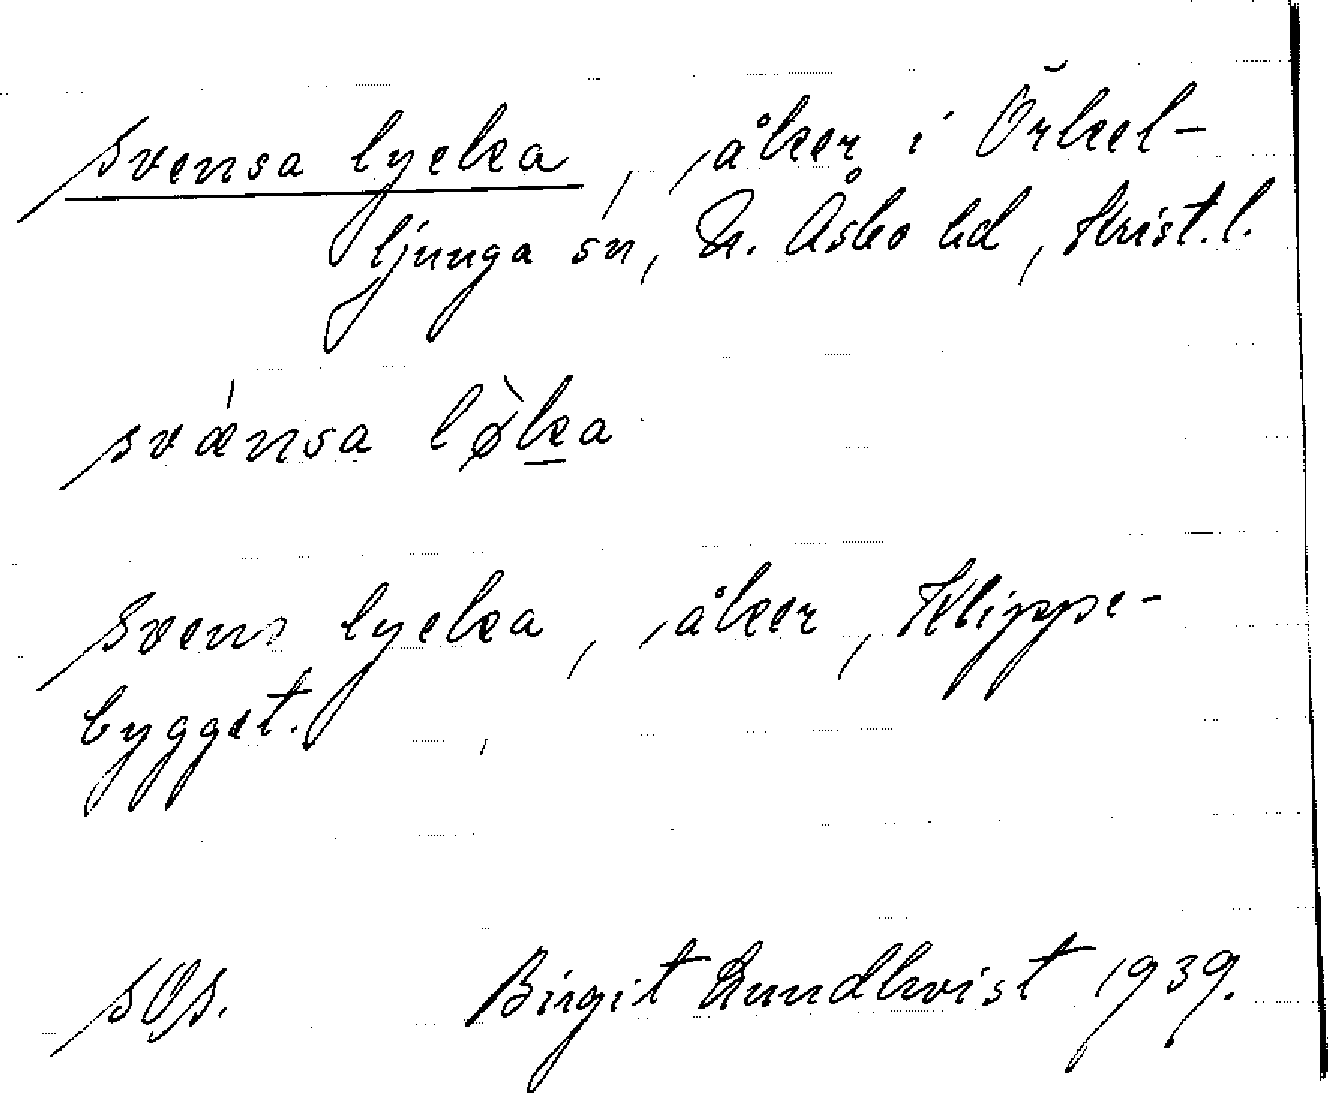 Svensa lycka, åker i Örkel-
ljunga sn, N. Åsbo hd, Krist. l.
svǽnsa lø̀ka
Svens lycka, åker, Klippe-
bygget.
Birgit Lundkvist 1939.